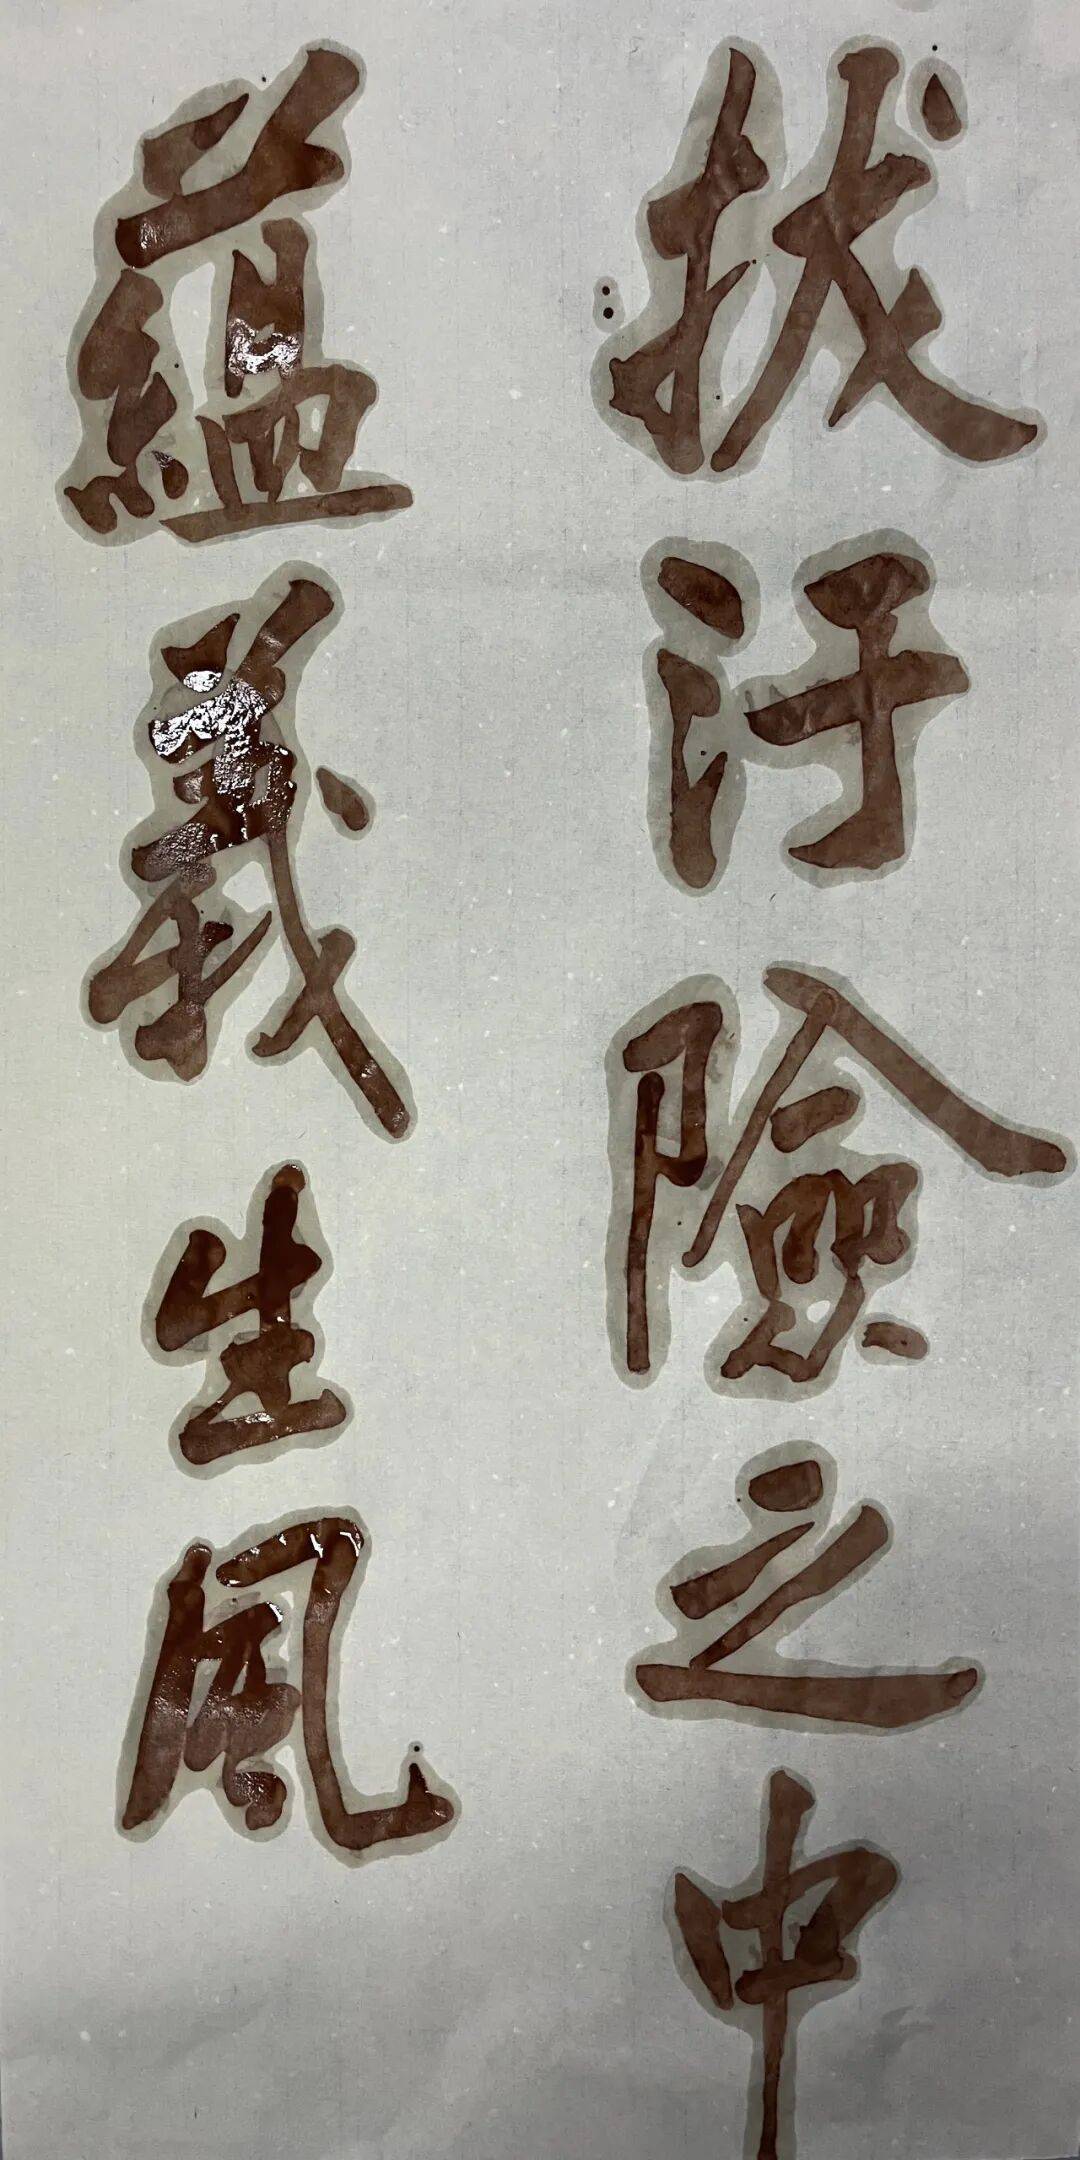 拔汙險之中
蘊義生風